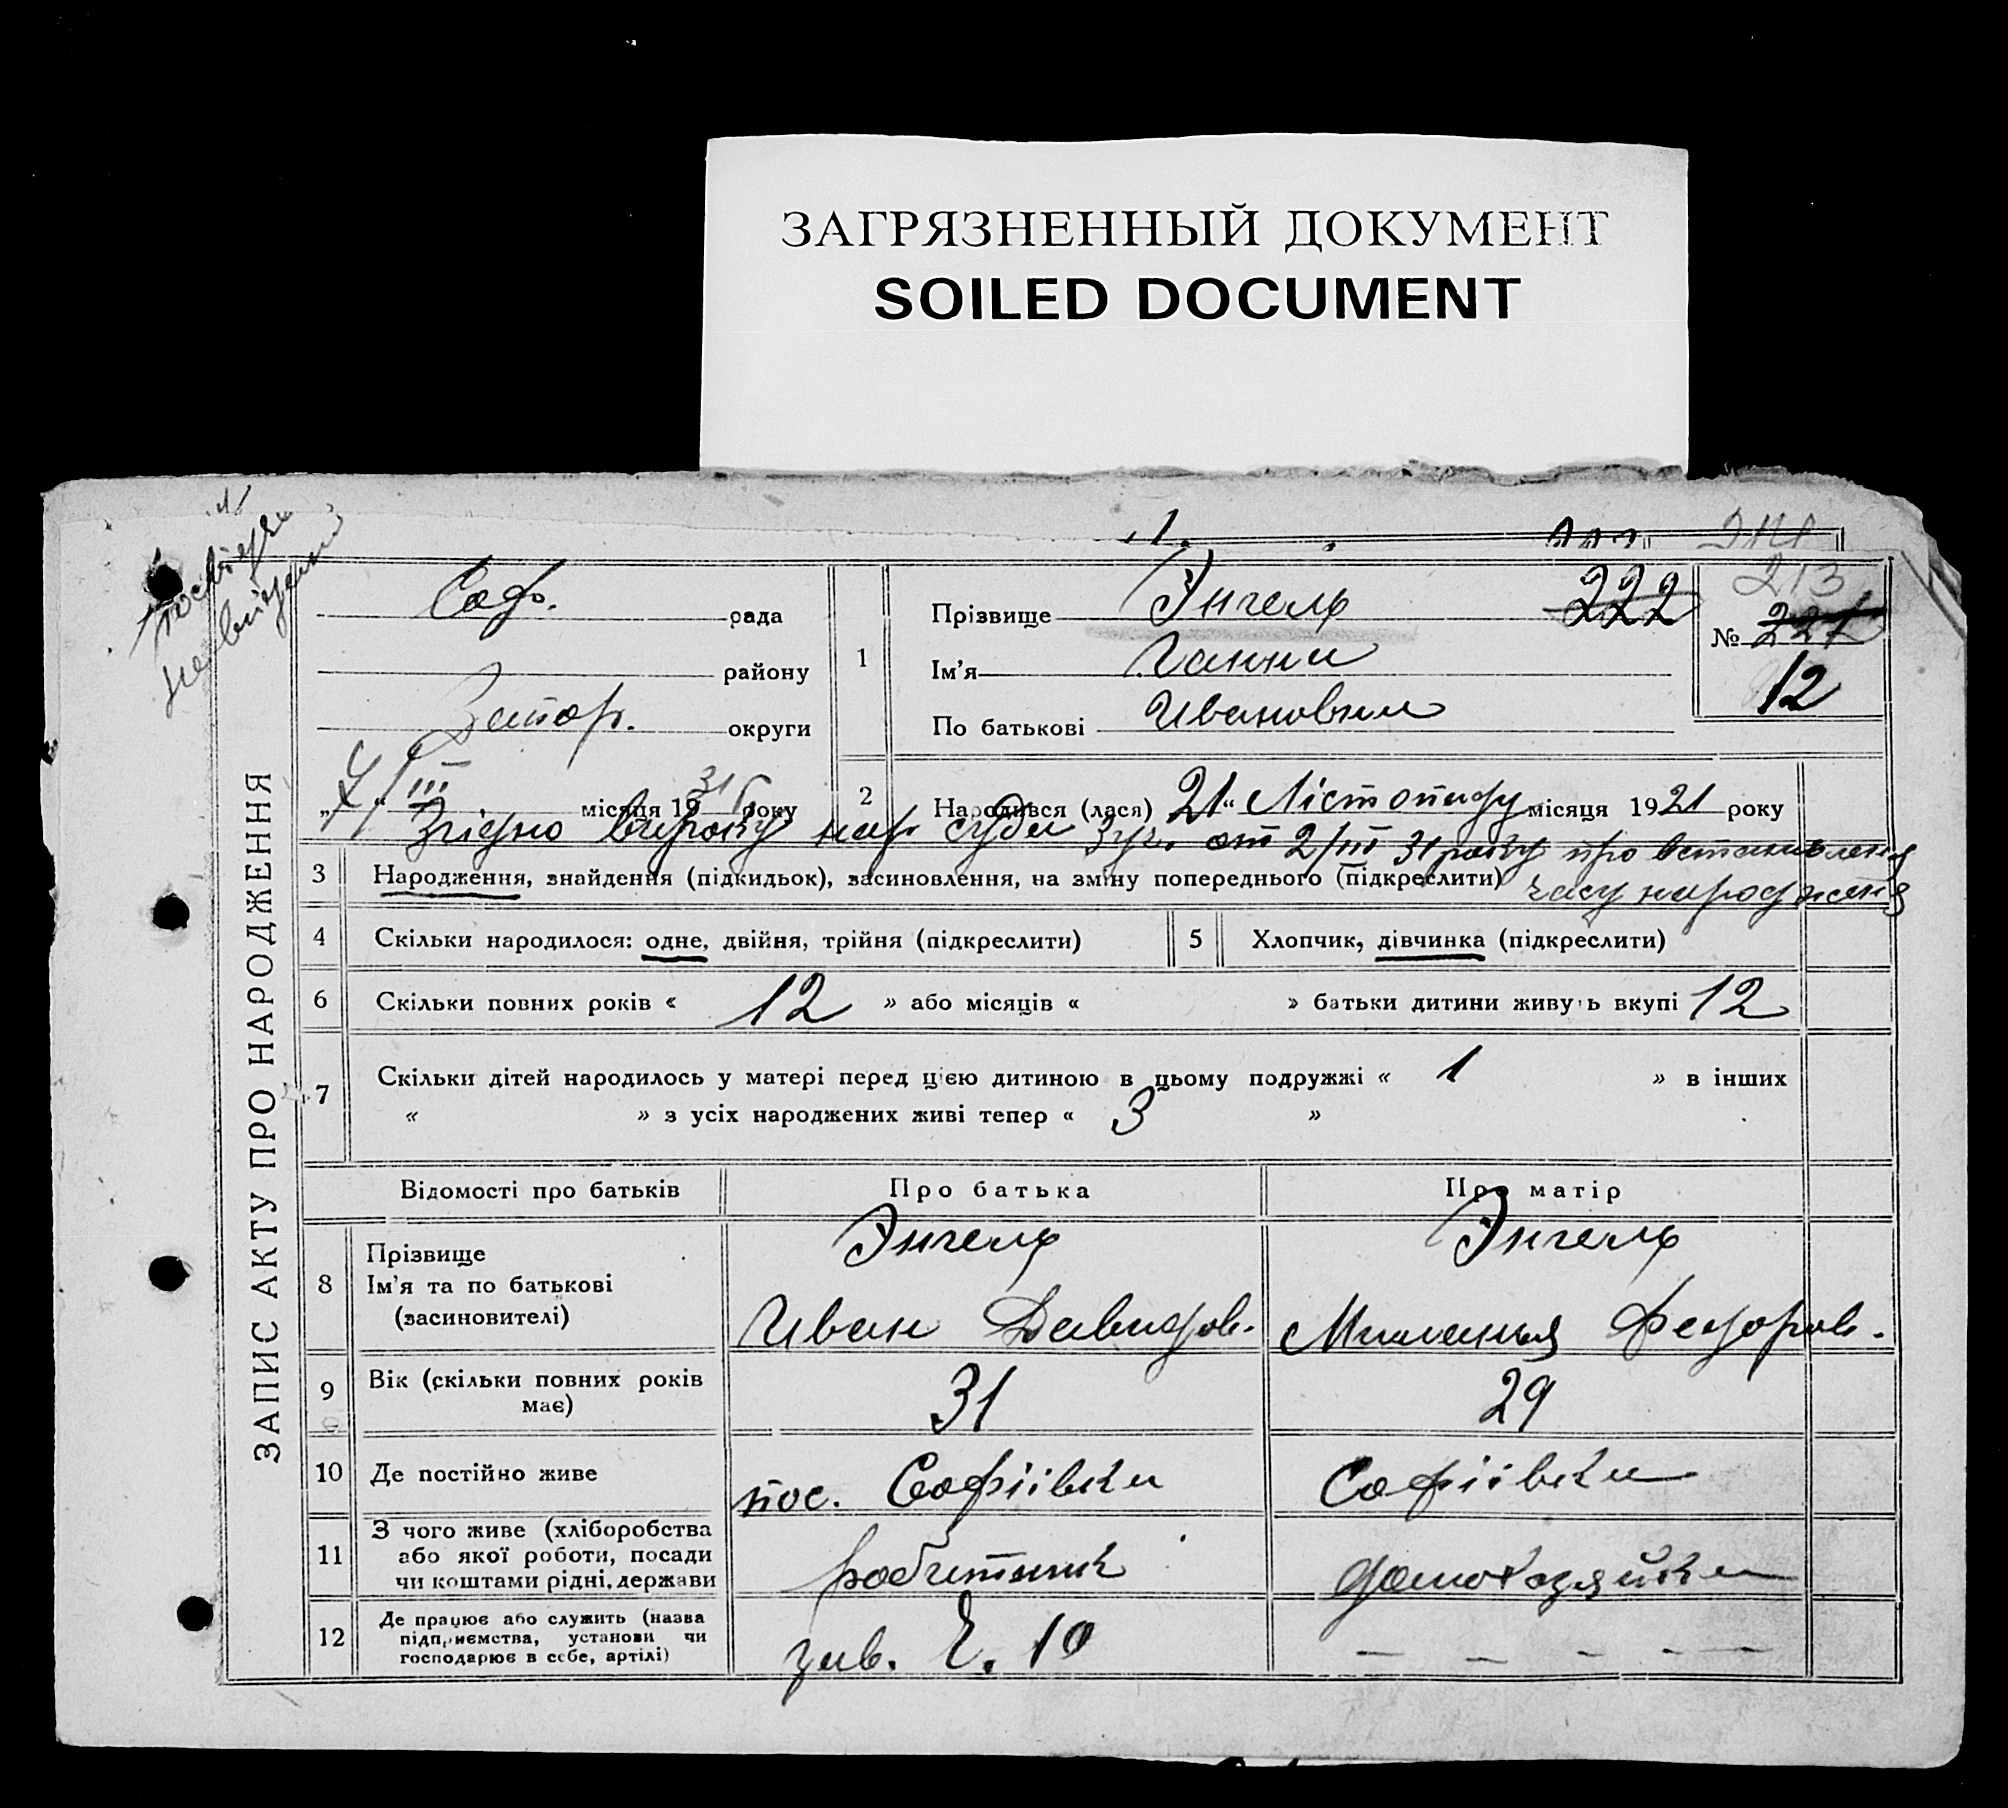 ЗАГРЯЗНЕННЫЙ ДОКУМЕНТ
SOILED DOCUMENT
ЗАПИС АКТУ ПРО НАРОДЖЕННЯ
Соф. рада
району
Запор. округи
1
Прізвище Энгель 222
Ім'я Ганна
По батькові Ивановна
213
№ 221
12
„ III місяця 19 31 року
2
Народився (лася) 21 “ Лістопаду місяця 19 21 року
Згідно вироку нар суда 3 уч. от 2/III 31 року про встановлення
часу народження
3 Народження, знайдення (підкидьок), засиновлення, на зміну попереднього (підкреслити)
4 Скільки народилося: одне, двійня, трійня (підкреслити)
5 Хлопчик, дівчинка (підкреслити)
6 Скільки повних років « 12 » або місяців « » батьки дитини живуть вкупі 12
7 Скільки дітей народилось у матері перед цією дитиною в цьому подружжі « 1 » в інших
« » з усіх народжених живі тепер « 3 »
Відомості про батьків Про батька Про матір
8 Прізвище Энгель Энгель
Ім'я та по батькові
(засиновителі) Иван Давидов. Федоров.
9 Вік (скільки повних років
має) 31 29
10 Де постійно живе пос. Софіівка Софіівка
11 З чого живе (хліборобства
або якої роботи, посади
чи коштами рідні, держави робитник домохазяйка
12 Де працює або служить (назва
підприємства, установи чи
господарює в себе, артілі) зав. 10 — — — —